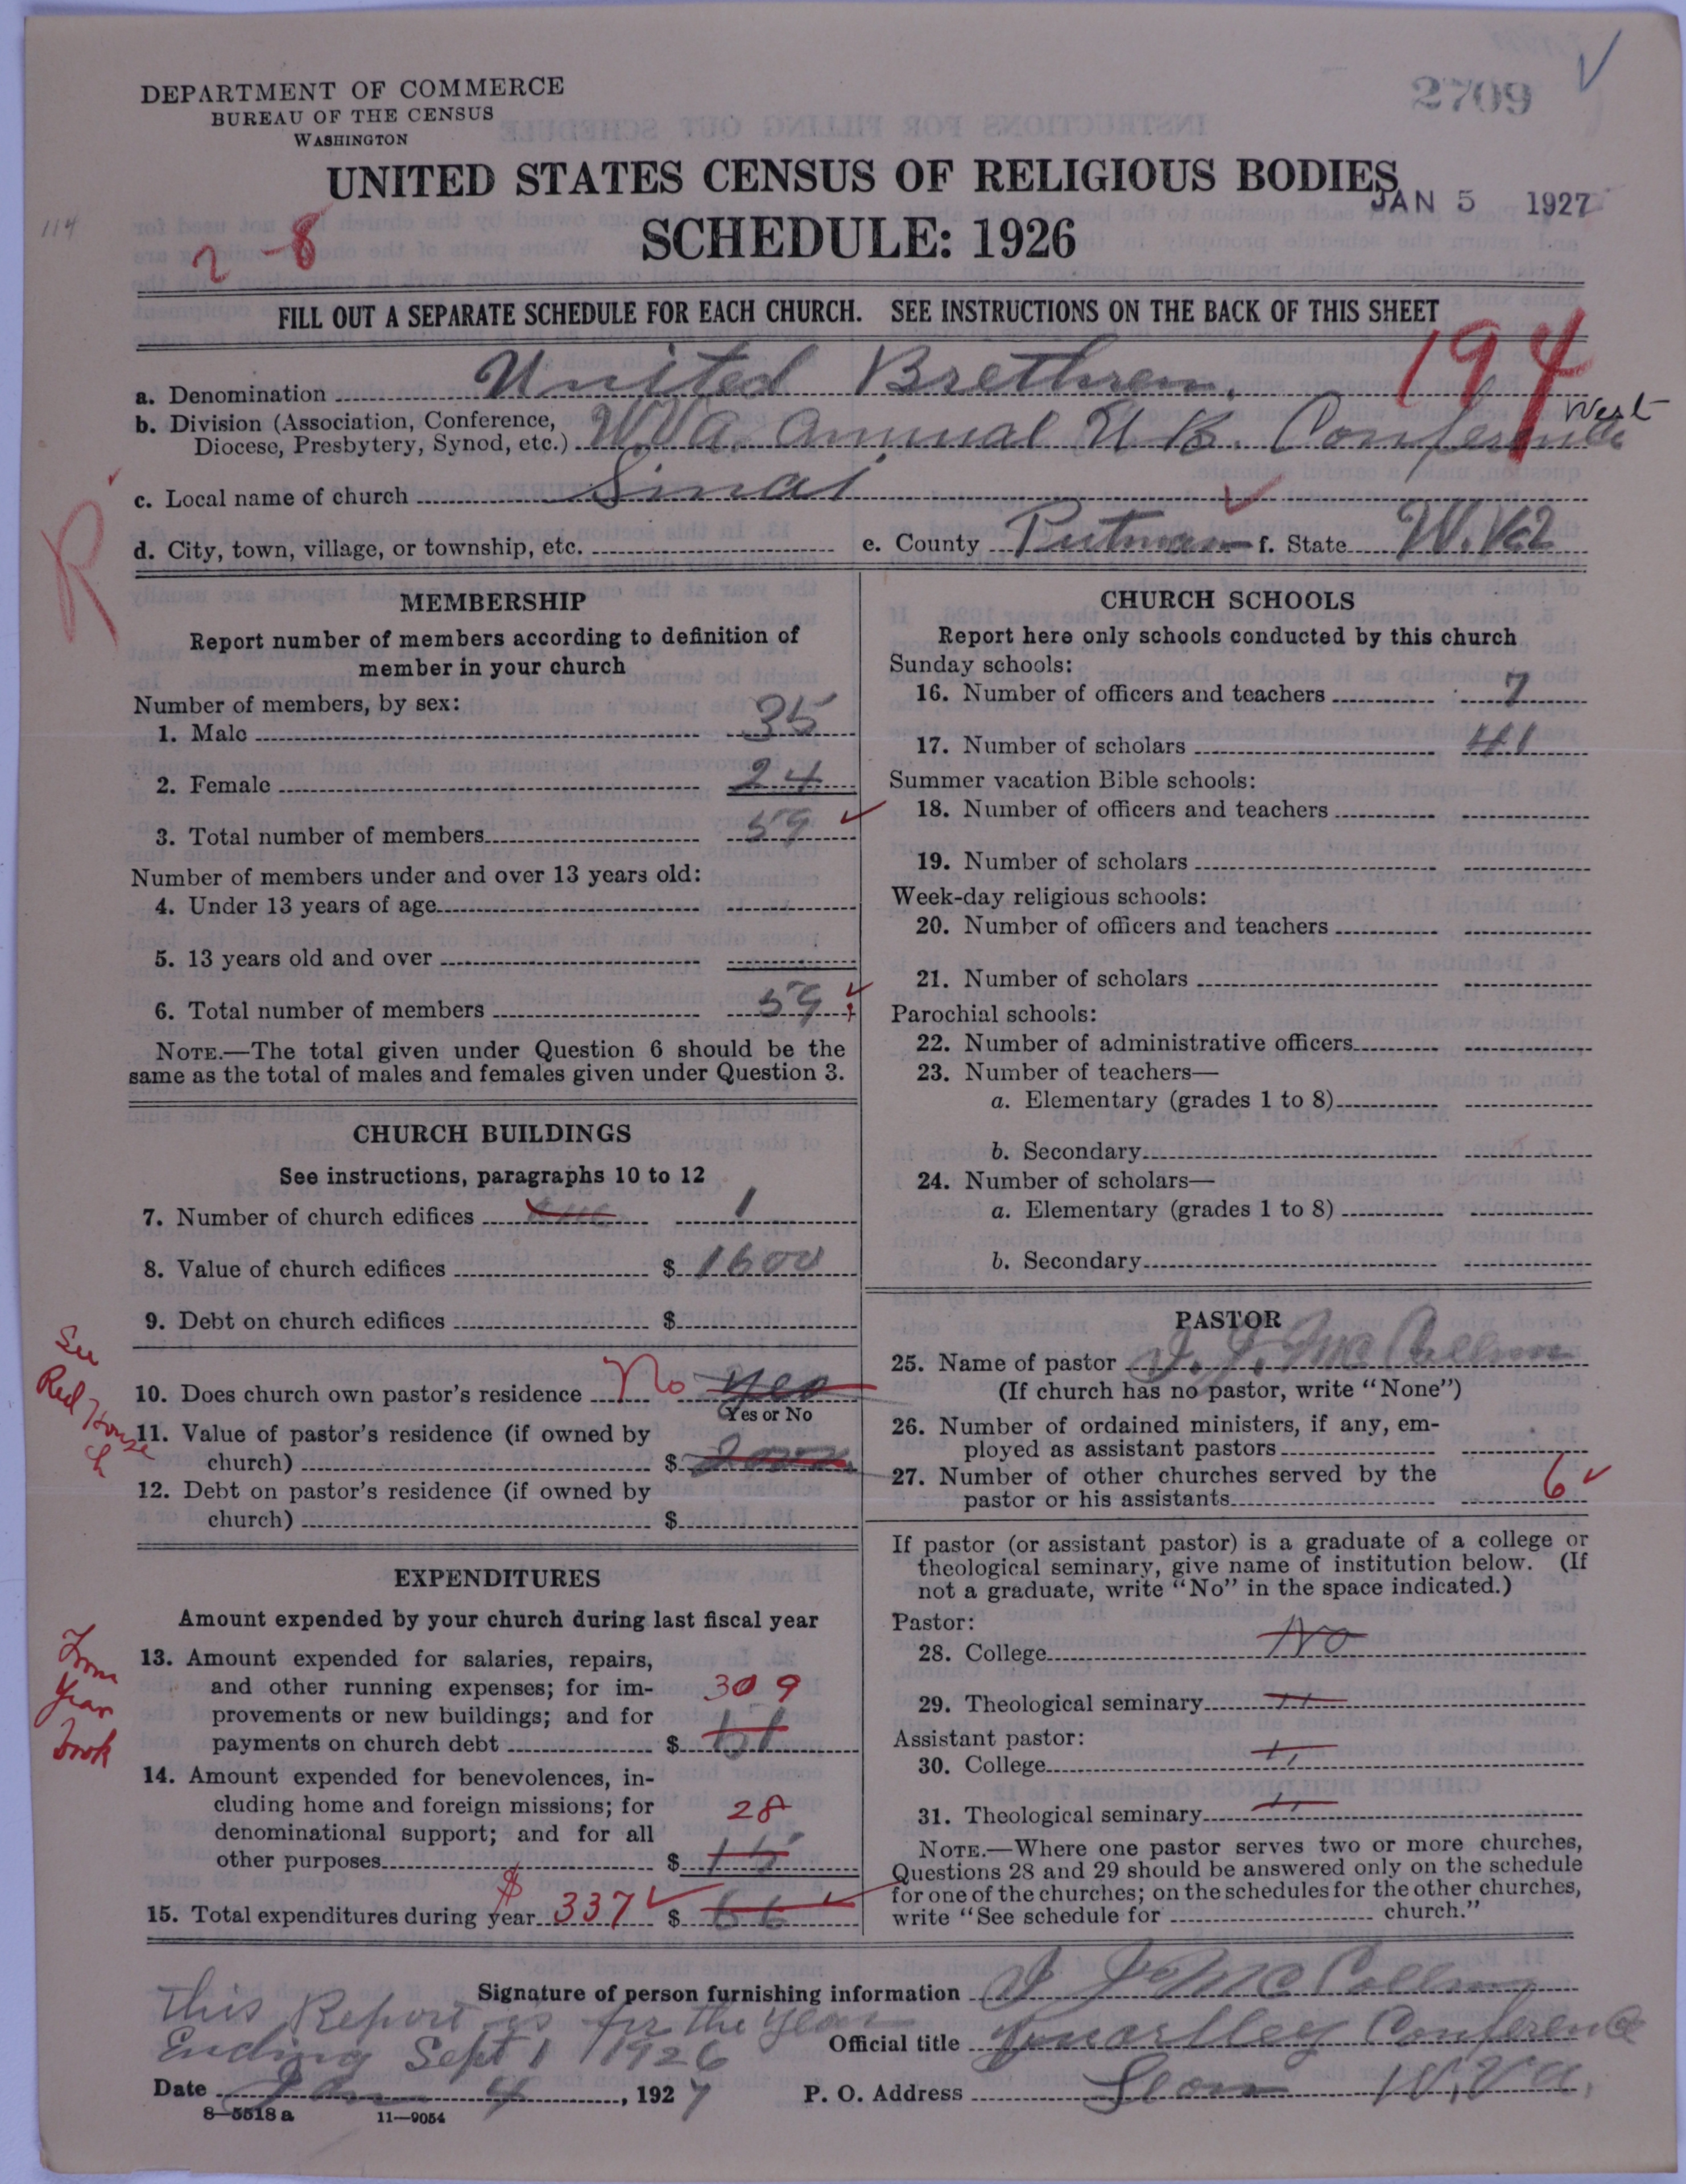 2709
DEPARTMENT OF COMMERCE
BUREAU OF THE CENSUS
WASHINGTON
UNITED STATES CENSUS OF RELIGIOUS BODIES
JAN 5 1927
SCHEDULE: 1926
114
2-8
FILL OUT A SEPARATE SCHEDULE FOR EACH CHURCH. SEE INSTRUCTIONS ON THE BACK OF THIS SHEET
194
a. Denomination United Brethren
West
b. Division (Association, Conference,
Diocese, Presbytery, Synod, etc.) W.Va. Annual U.B. Conference
c. Local name of church Sinai
R
d. City, town, village, or township, etc. e. County Putnam f. State W.Va
MEMBERSHIP
Report number of members according to definition of
member in your church
Number of members, by sex:
1. Male 35
2. Female 24
3. Total number of members 59
Number of members under and over 13 years old:
4. Under 13 years of age
5. 13 years old and over
6. Total number of members 59
NOTE.—The total given under Question 6 should be the
same as the total of males and females given under Question 3.
CHURCH BUILDINGS
See instructions, paragraphs 10 to 12
7. Number of church edifices one 1
8. Value of church edifices $ 1600
9. Debt on church edifices $
See
Red House
ch
10. Does church own pastor's residence No yes
Yes or No
11. Value of pastor's residence (if owned by
church) $
12. Debt on pastor's residence (if owned by
church) $
EXPENDITURES
Amount expended by your church during last fiscal year
From
Year
Book
13. Amount expended for salaries, repairs,
and other running expenses; for im- 309
provements or new buildings; and for
payments on church debt $ 51
14. Amount expended for benevolences, in-
cluding home and foreign missions; for 28
denominational support; and for all
other purposes $ 15
15. Total expenditures during year $ 337 $ 66
CHURCH SCHOOLS
Report here only schools conducted by this church
Sunday schools:
16. Number of officers and teachers 7
17. Number of scholars 41
Summer vacation Bible schools:
18. Number of officers and teachers
19. Number of scholars
Week-day religious schools:
20. Number of officers and teachers
21. Number of scholars
Parochial schools:
22. Number of administrative officers
23. Number of teachers—
a. Elementary (grades 1 to 8)
b. Secondary
24. Number of scholars—
a. Elementary (grades 1 to 8)
b. Secondary
PASTOR
25. Name of pastor I. J. McCallum
(If church has no pastor, write "None")
26. Number of ordained ministers, if any, em-
ployed as assistant pastors
27. Number of other churches served by the
pastor or his assistants 6
If pastor (or assistant pastor) is a graduate of a college or
theological seminary, give name of institution below. (If
not a graduate, write "No" in the space indicated.)
Pastor:
28. College No
29. Theological seminary "
Assistant pastor:
30. College "
31. Theological seminary "
NOTE.—Where one pastor serves two or more churches,
Questions 28 and 29 should be answered only on the schedule
for one of the churches; on the schedules for the other churches,
write "See schedule for church."
Signature of person furnishing information
This Report is for the Year
Ending Sept 1 1926
Official title Conference
Date Jan 4, 1927 P. O. Address Leon W.Va.
8—5518 a 11—9054